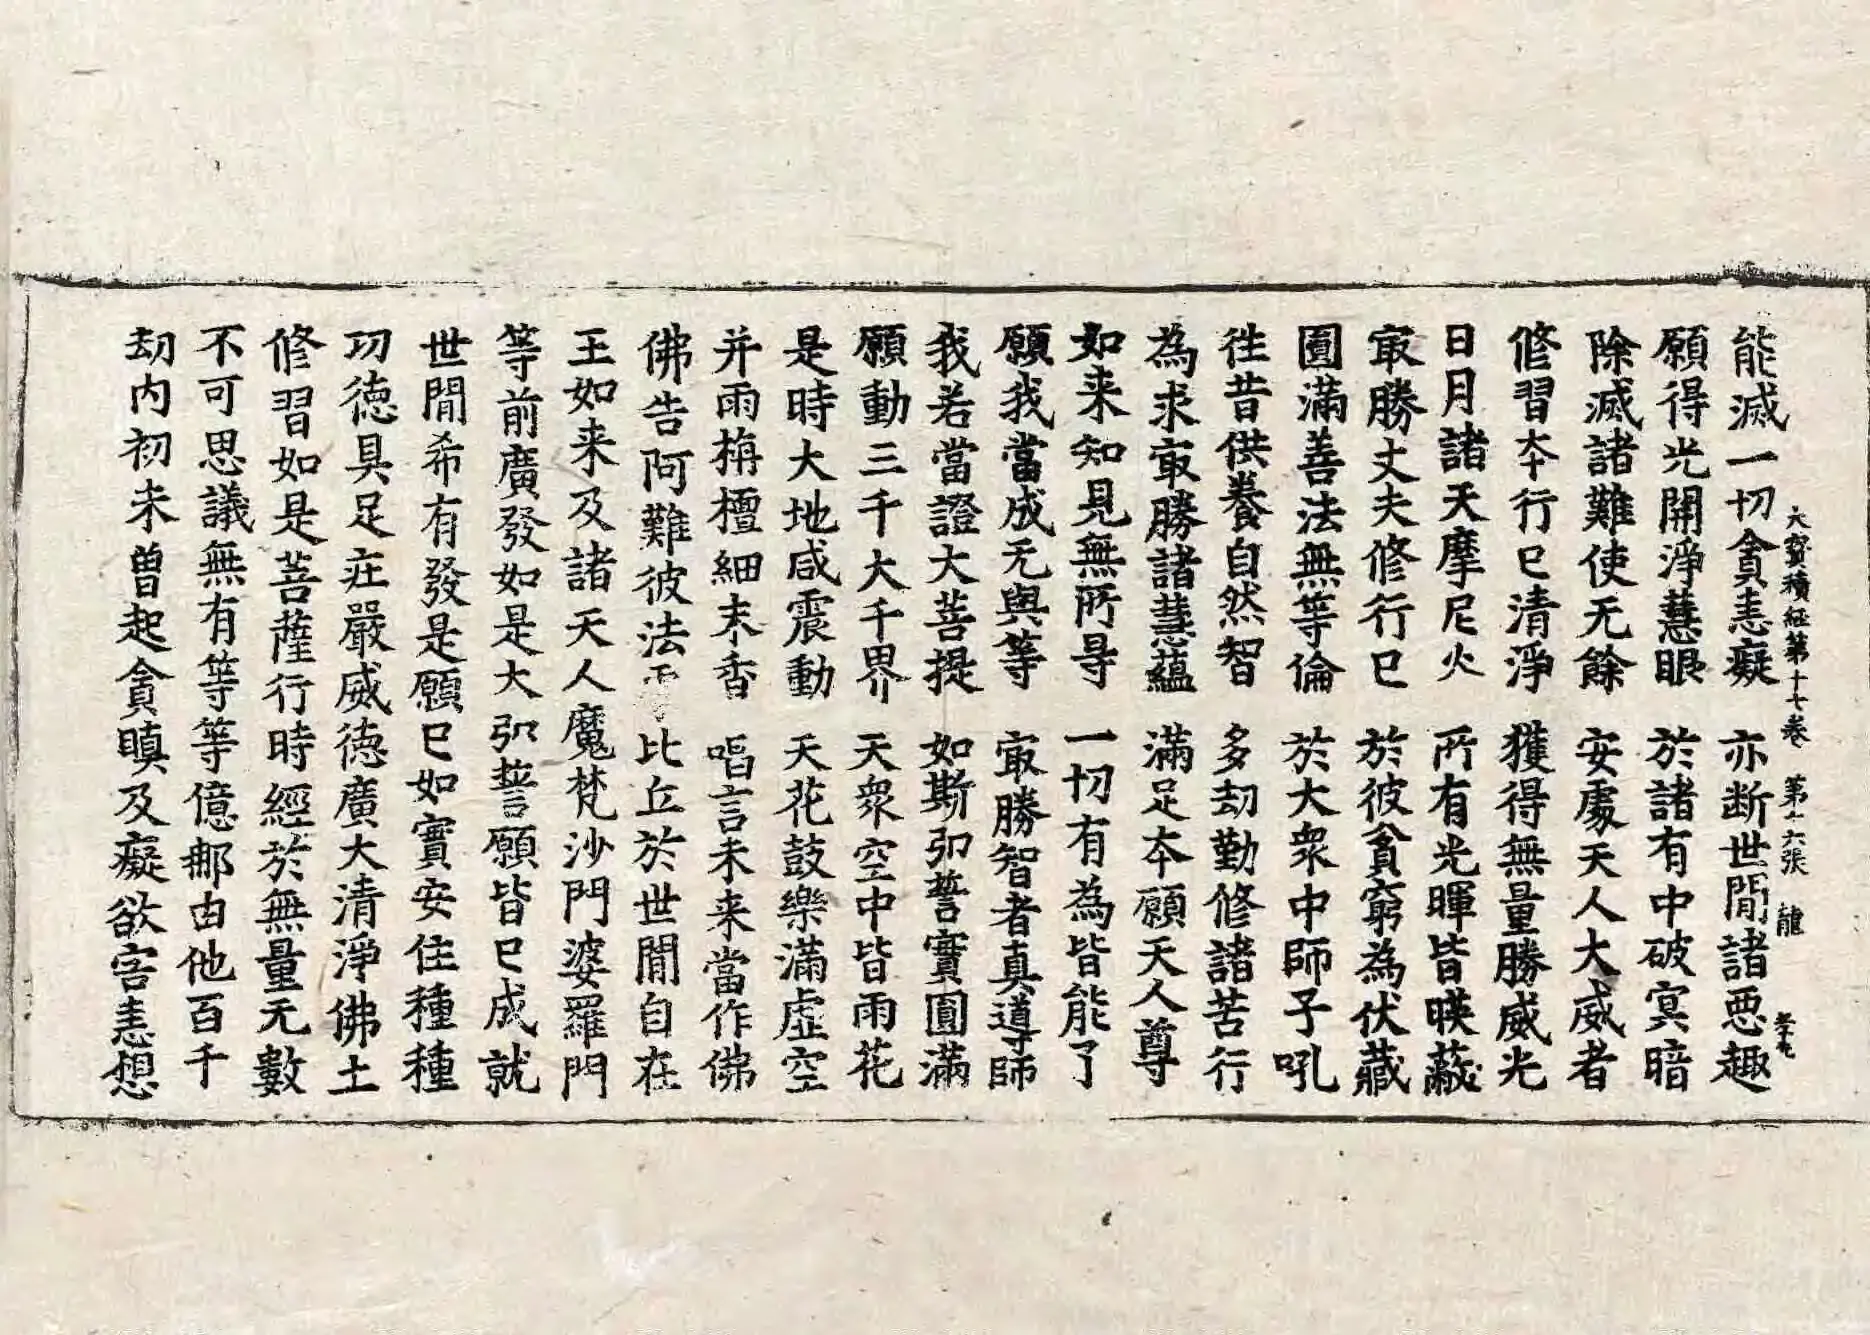 大寶積經第十七卷 第十六張 龍
能滅一切貪恚癡 亦断世閒諸惡趣
願得光開淨慧眼 於諸有中破冥暗
除滅諸難使无餘 安處天人大威者
修習夲行巳清淨 獲得無量勝威光
日月諸天摩尼火 所有光暉皆暎蔽
㝡勝丈夫修行巳 於彼貧窮為伏藏
圓滿善法無等倫 於大衆中師子吼
徃昔供養自然智 多劫勤修諸苦行
為求㝡勝諸慧蘊 滿足夲願天人尊
如来知見無所㝵 一切有為皆能了
願我當成无與等 㝡勝智者真導師
我若當證大菩提 如斯弘誓實圓滿
願動三千大千界 天衆空中皆雨花
是時大地咸震動 天花鼓樂滿虛空
并雨栴檀細末香 唱言未来當作佛
佛告阿難彼法處比丘於世閒自在
王如来及諸天人魔梵沙門婆羅門
等前廣發如是大弘誓願皆巳成就
世閒希有發是願巳如實安住種種
功德具足莊嚴威德廣大清淨佛土
修習如是菩薩行時經於無量无數
不可思議無有等等億那由他百千
劫内初未曾起貪瞋及癡欲害恚想